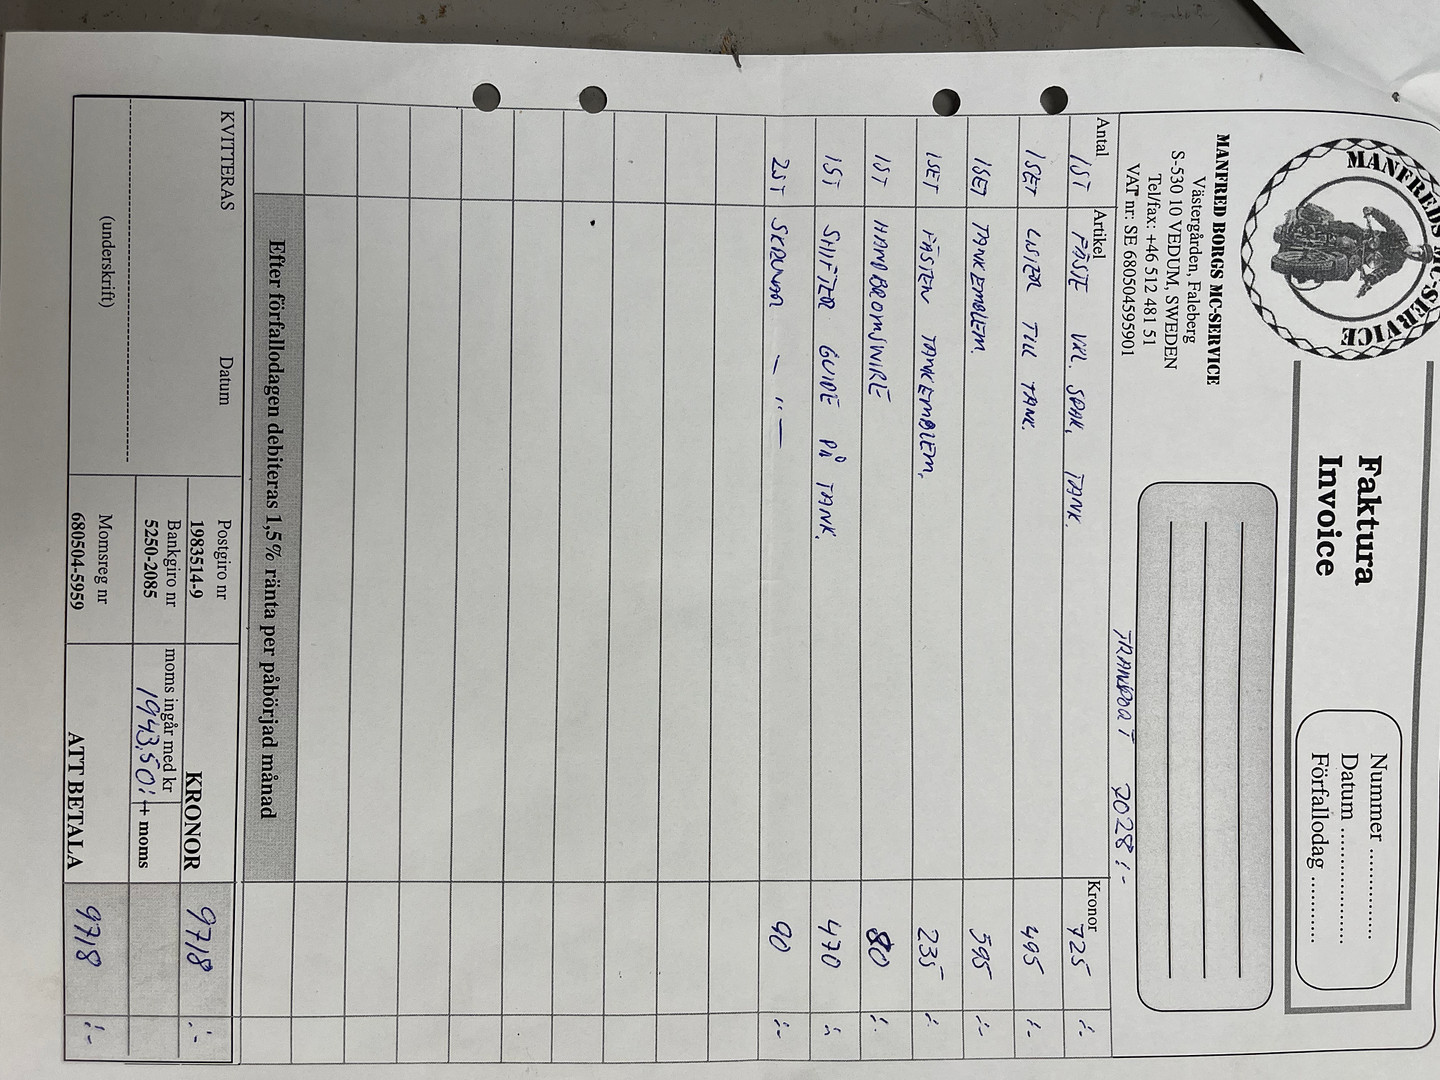 MANFREDS MC-SERVICE
MANFRED BORGS MC-SERVICE
Västergården, Faleberg
S-530 10 VEDUM, SWEDEN
Tel/fax: +46 512 481 51
VAT nr: SE 680504595901
Faktura
Invoice
Nummer ...............
Datum ...................
Förfallodag ...........
TRANSPORT 7028:-
Antal Artikel Kronor
1ST FÄSTE VXL. SPAK, TANK. 725 :-
1SET LISTER TILL TANK. 495 :-
1SET TANKEMBLEM. 595 :-
1SET FÄSTEN TANKEMBLEM. 235 :-
1ST HANDBROMSWIRE 80 :-
1ST SHIFTER GUIDE PÅ TANK. 470 :-
2ST SKRUVAR — " — 90 :-
Efter förfallodagen debiteras 1,5% ränta per påbörjad månad
KVITTERAS Datum
(underskrift)
Postgiro nr
1983514-9
Bankgiro nr
5250-2085
Momsreg nr
680504-5959
KRONOR 9718 :-
moms ingår med kr
1943,50:- + moms
ATT BETALA 9718 :-